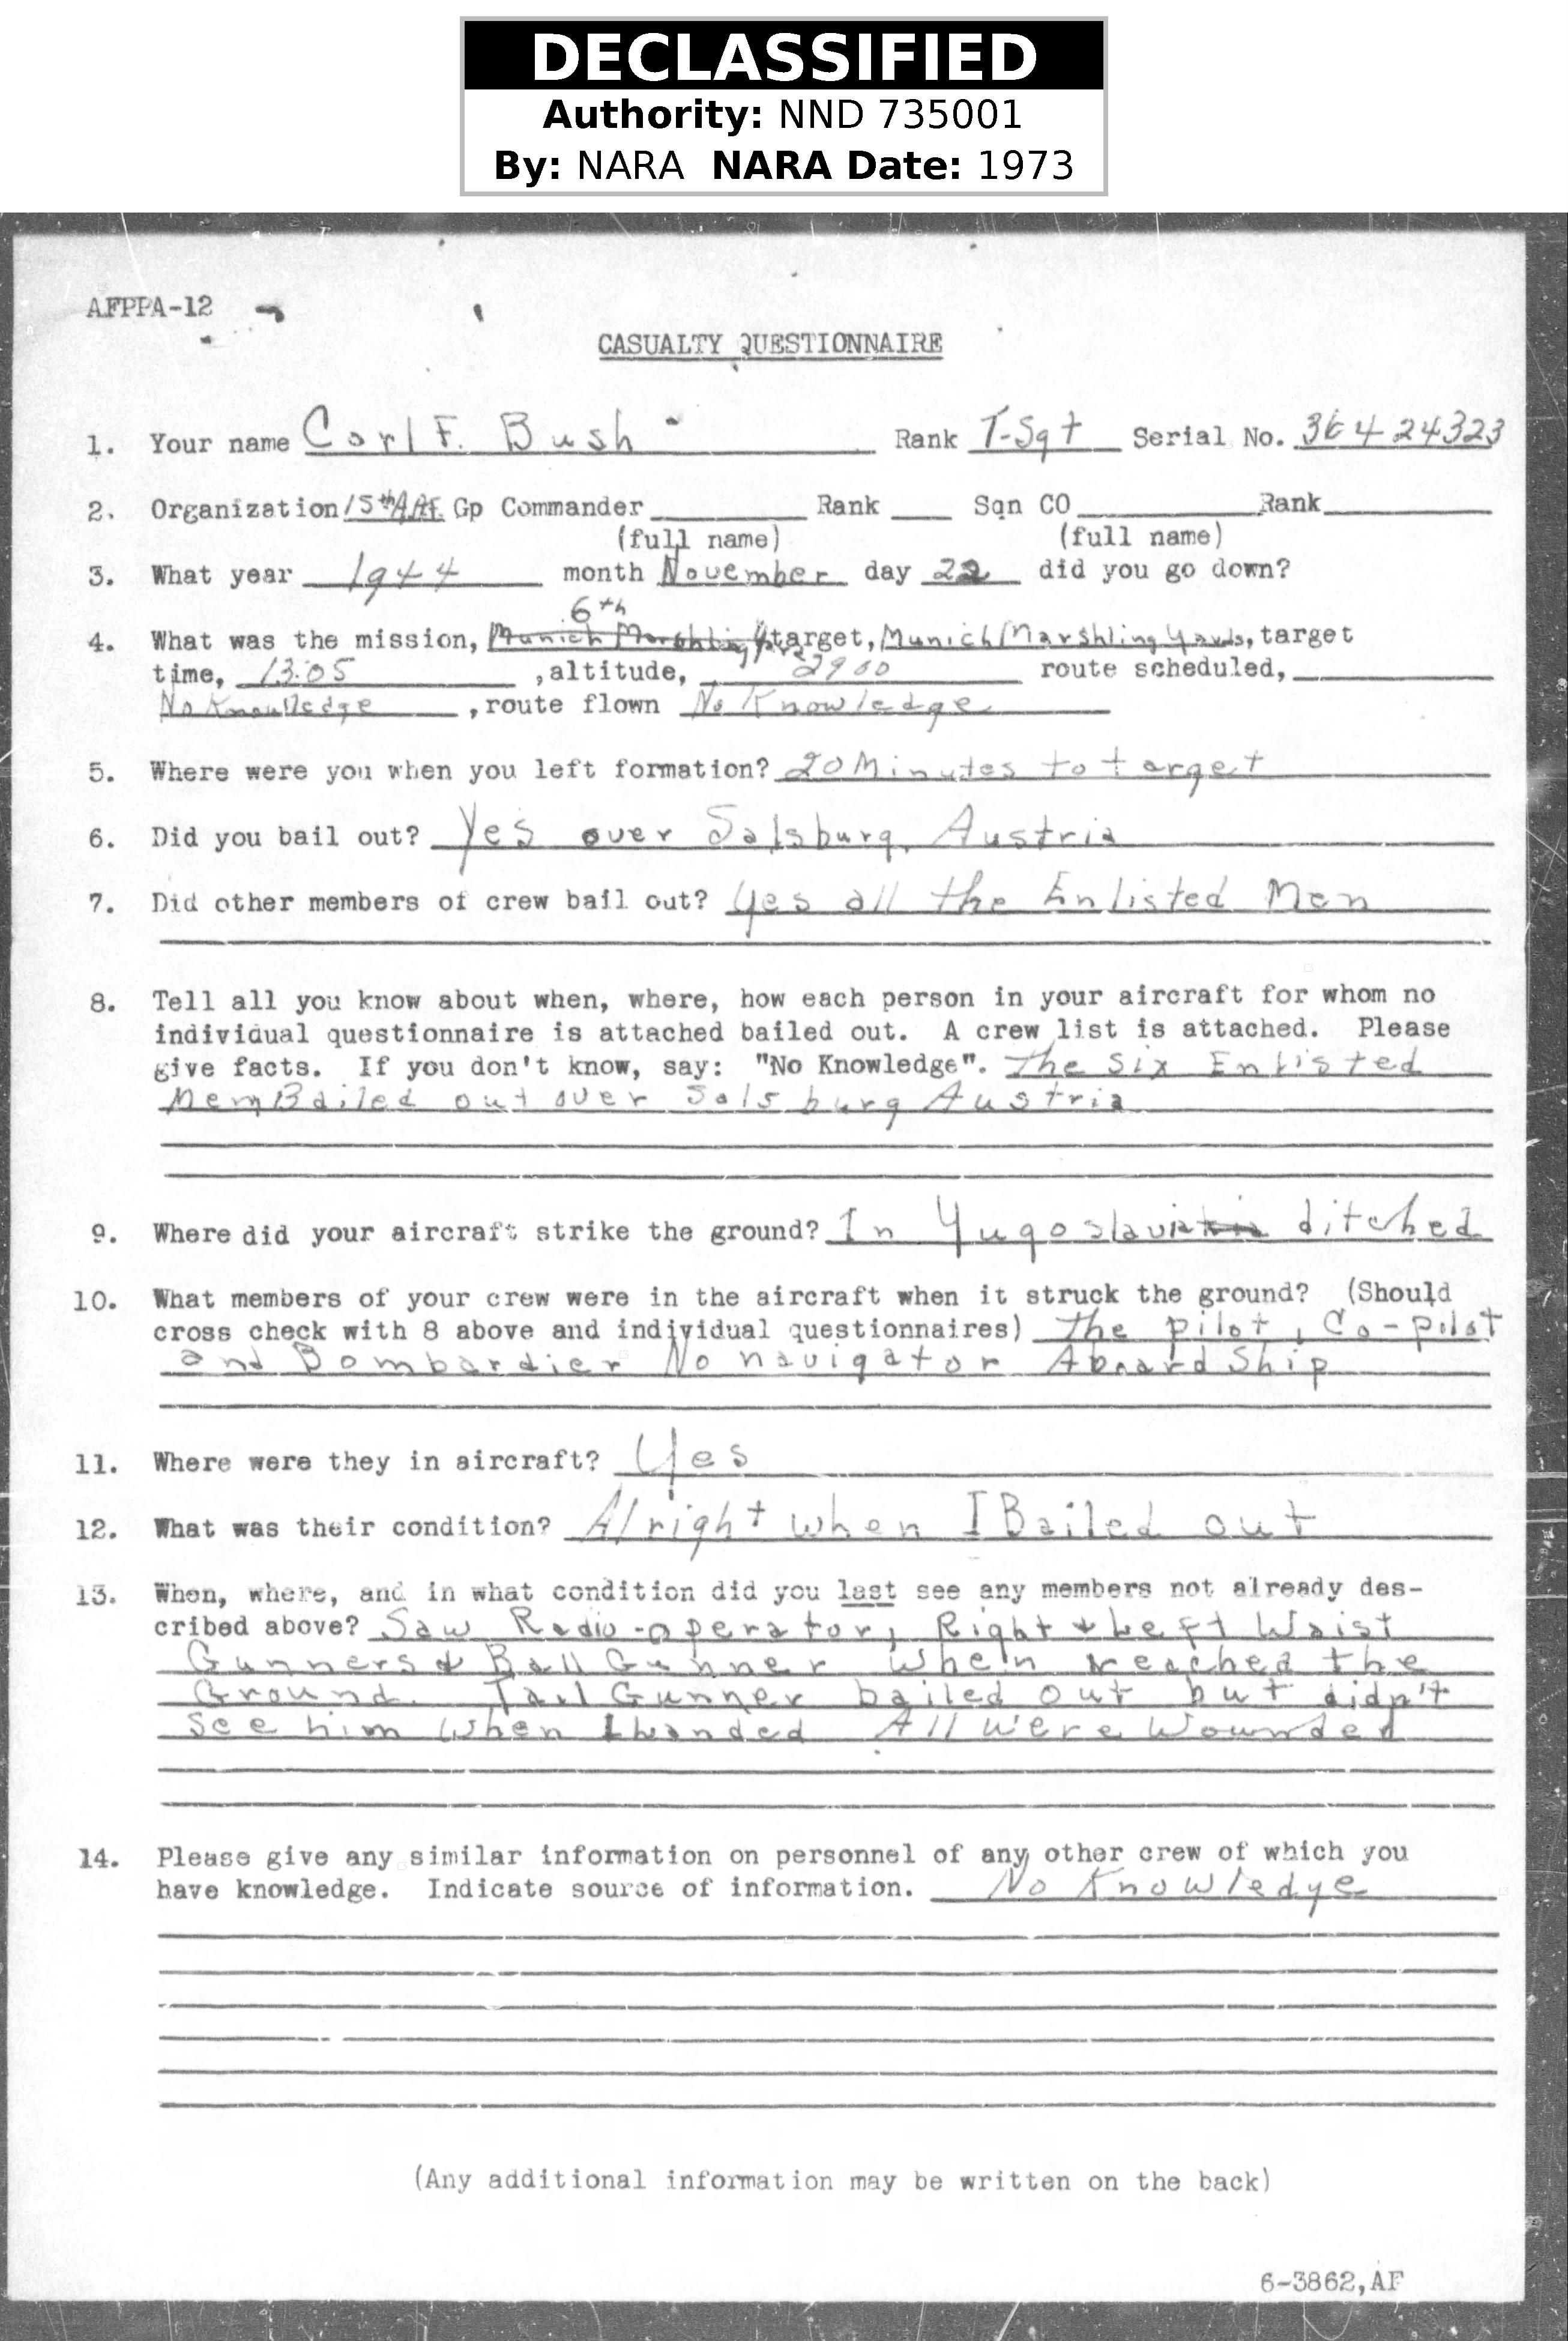 DECLASSIFIED
Authority: NND 735001
By: NARA NARA Date: 1973
AFPPA-12
CASUALTY QUESTIONNAIRE
1. Your name Carl F. Bush Rank T-Sgt Serial No. 36424323
2. Organization 15th AAF. Gp Commander Rank Sqn CO Rank
(full name) (full name)
3. What year 1944 month November day 22 did you go down?
6th
4. What was the mission, Munich Marshling Yards target, Munich Marshling Yards, target
time, 13:05 , altitude, 2900 route scheduled,
No Knowlledge , route flown No Knowledge
5. Where were you when you left formation? 20 Minutes to target
6. Did you bail out? Yes over Salsburg, Austria
7. Did other members of crew bail out? Yes all the Enlisted Men
8. Tell all you know about when, where, how each person in your aircraft for whom no
individual questionnaire is attached bailed out. A crew list is attached. Please
give facts. If you don't know, say: "No Knowledge". The Six Enlisted
Men Bailed out over Salsburg Austria
9. Where did your aircraft strike the ground? In Yugoslavia ditched
10. What members of your crew were in the aircraft when it struck the ground? (Should
cross check with 8 above and individual questionnaires) The pilot, Co-pilot
and Bombardier No navigator Aboard Ship
11. Where were they in aircraft? Yes
12. What was their condition? Alright when I Bailed out
13. When, where, and in what condition did you last see any members not already des-
cribed above? Saw Radio-operator, Right & Left Waist
Gunners & Ball Gunner when reached the
Ground. Tail Gunner bailed out but didn't
see him when I landed All were Wounded
14. Please give any similar information on personnel of any other crew of which you
have knowledge. Indicate source of information. No Knowledge
(Any additional information may be written on the back)
6-3862,AF